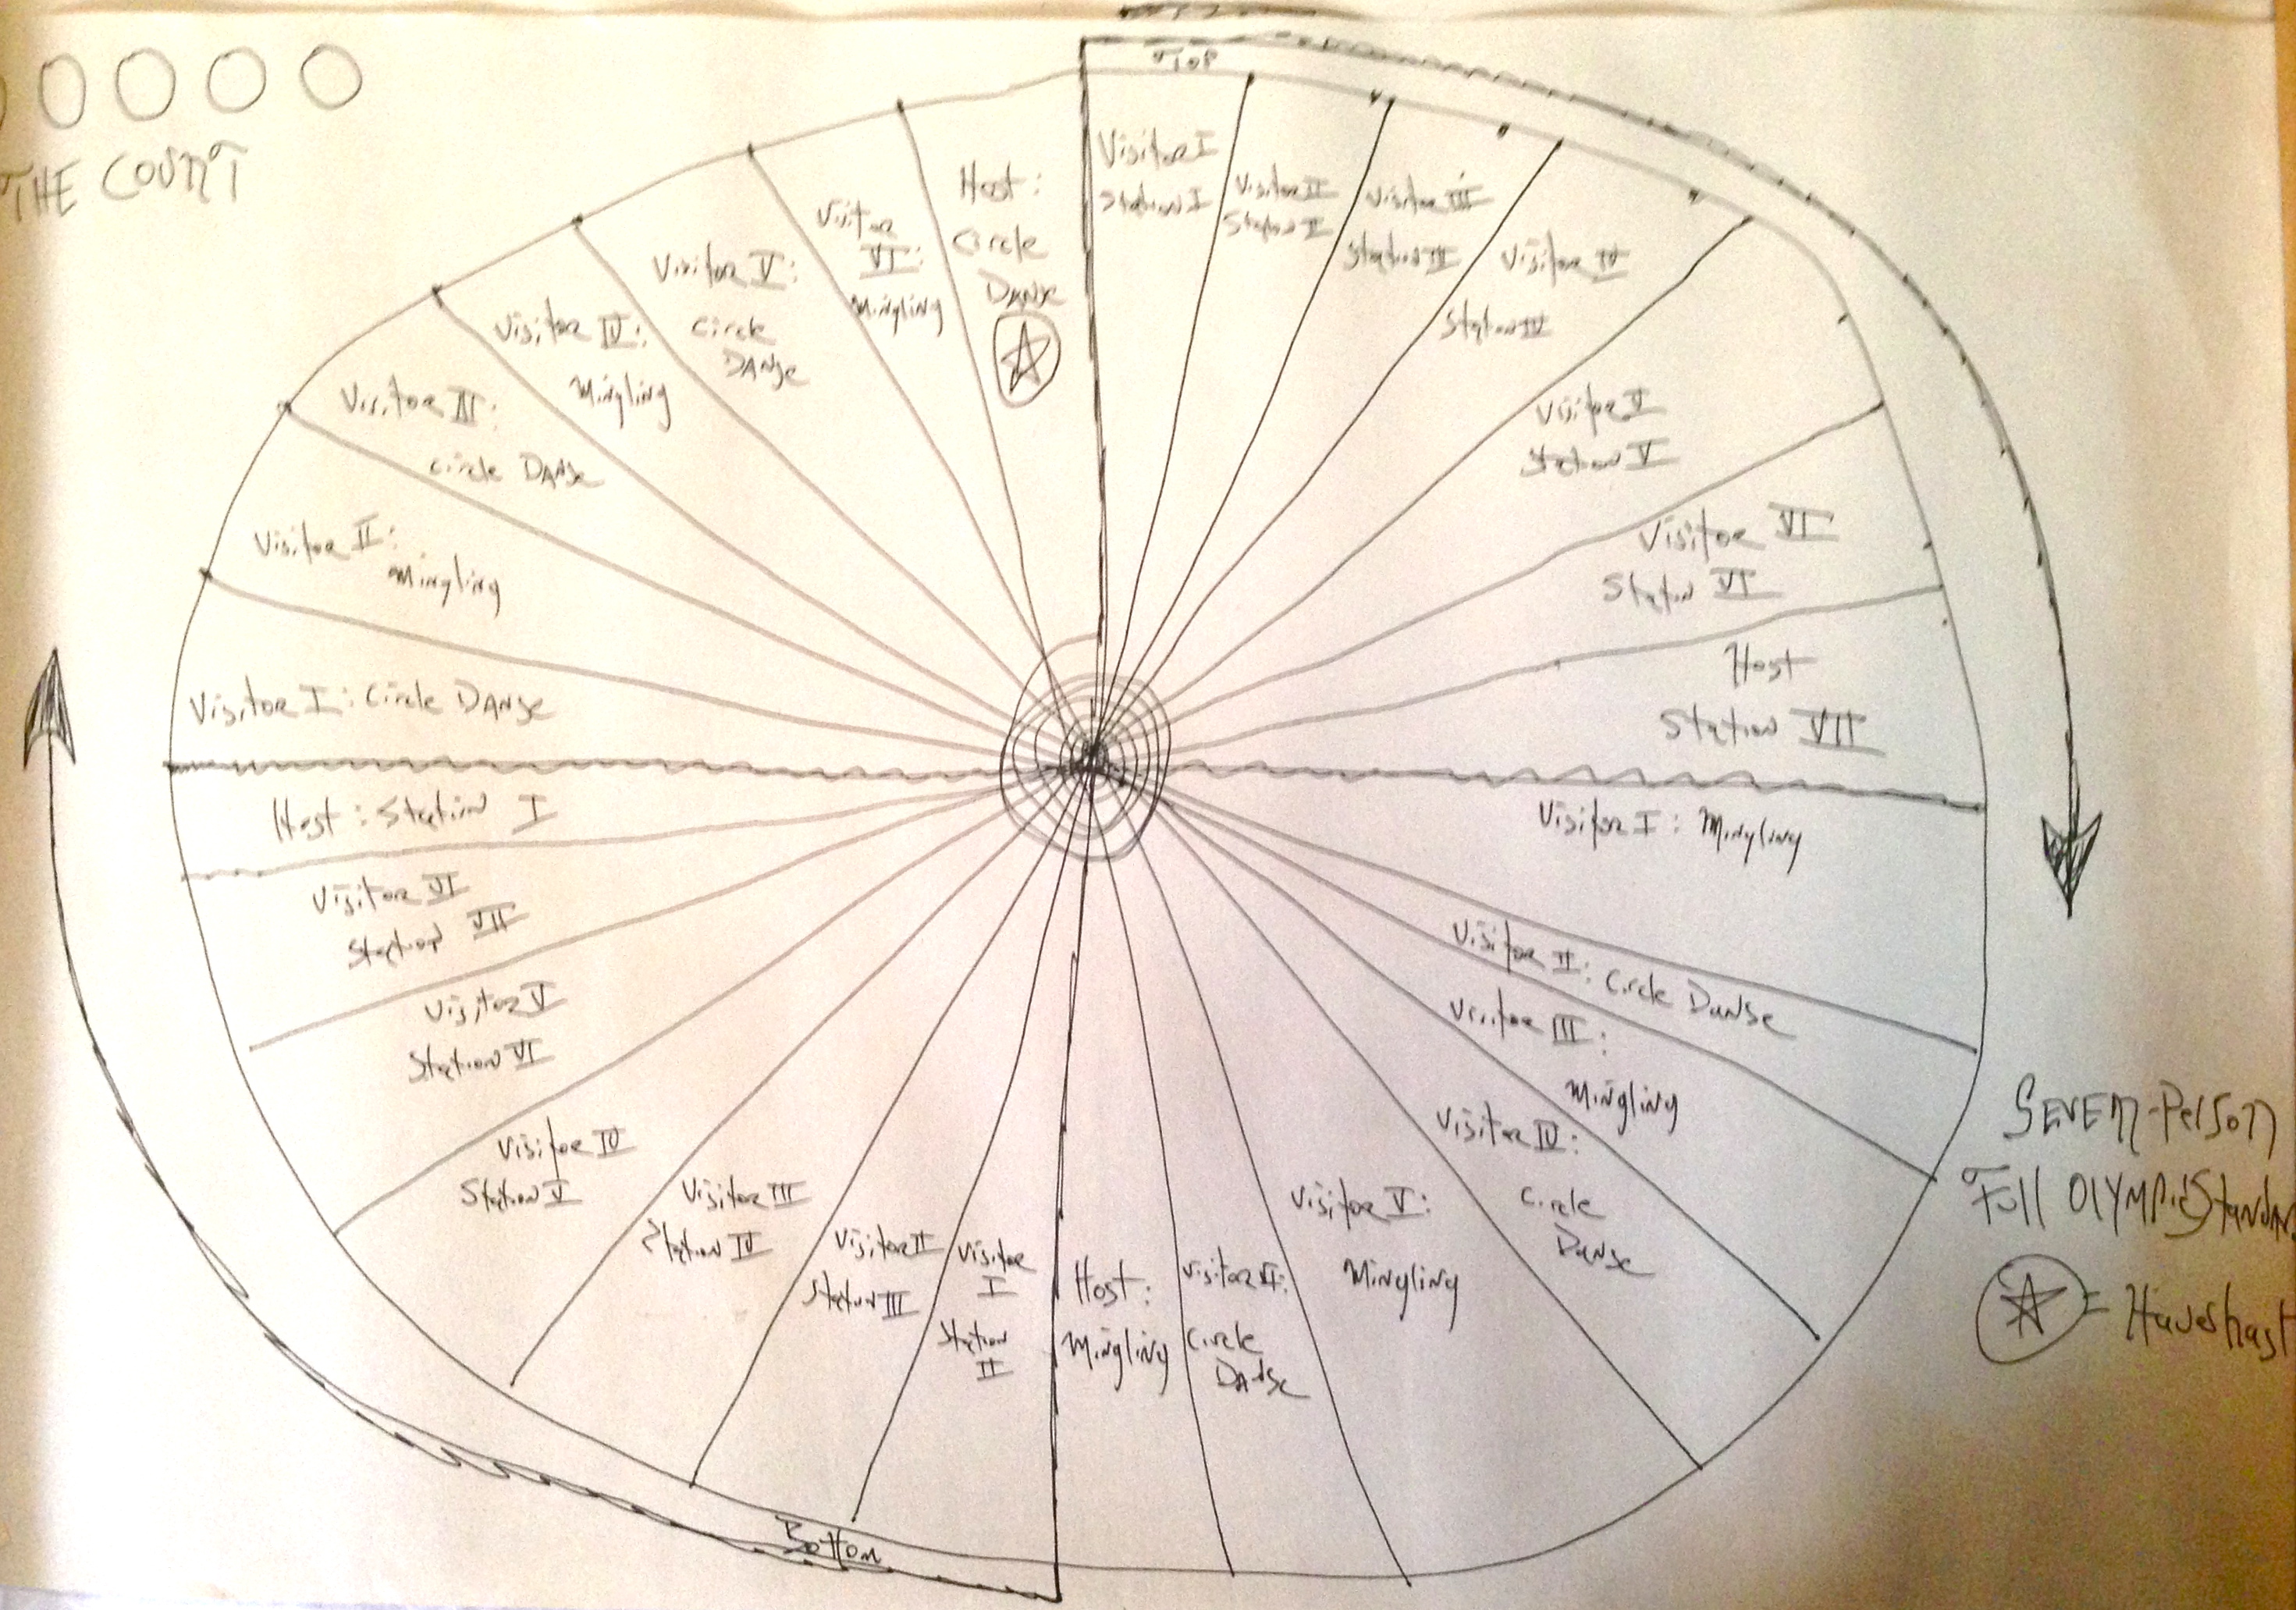 THE COUNT
Top
Visitor I
Station I
Visitor II
Station II
Visitor III
Station III
Visitor IV
Station IV
Visitor V
Station V
Visitor VI
Station VI
Host
Station VII
Visitor I: Mingling
Visitor II: Circle Danse
Visitor III:
Mingling
Visitor IV:
Circle
Danse
Visitor V:
Mingling
Visitor VI:
Circle
Danse
Host:
Mingling
Bottom
Visitor
I
Station
II
Visitor II
Station III
Visitor III
Station IV
Visitor IV
Station V
Visitor V
Station VI
Visitor VI
Station VII
Host: Station I
Visitor I: Circle Danse
Visitor II:
Mingling
Visitor III:
Circle Danse
Visitor IV:
Mingling
Visitor V:
Circle
Danse
Visitor
VI:
Mingling
Host:
Circle
Danse
Seven-Person
Full Olympic Standar
= Haveshast